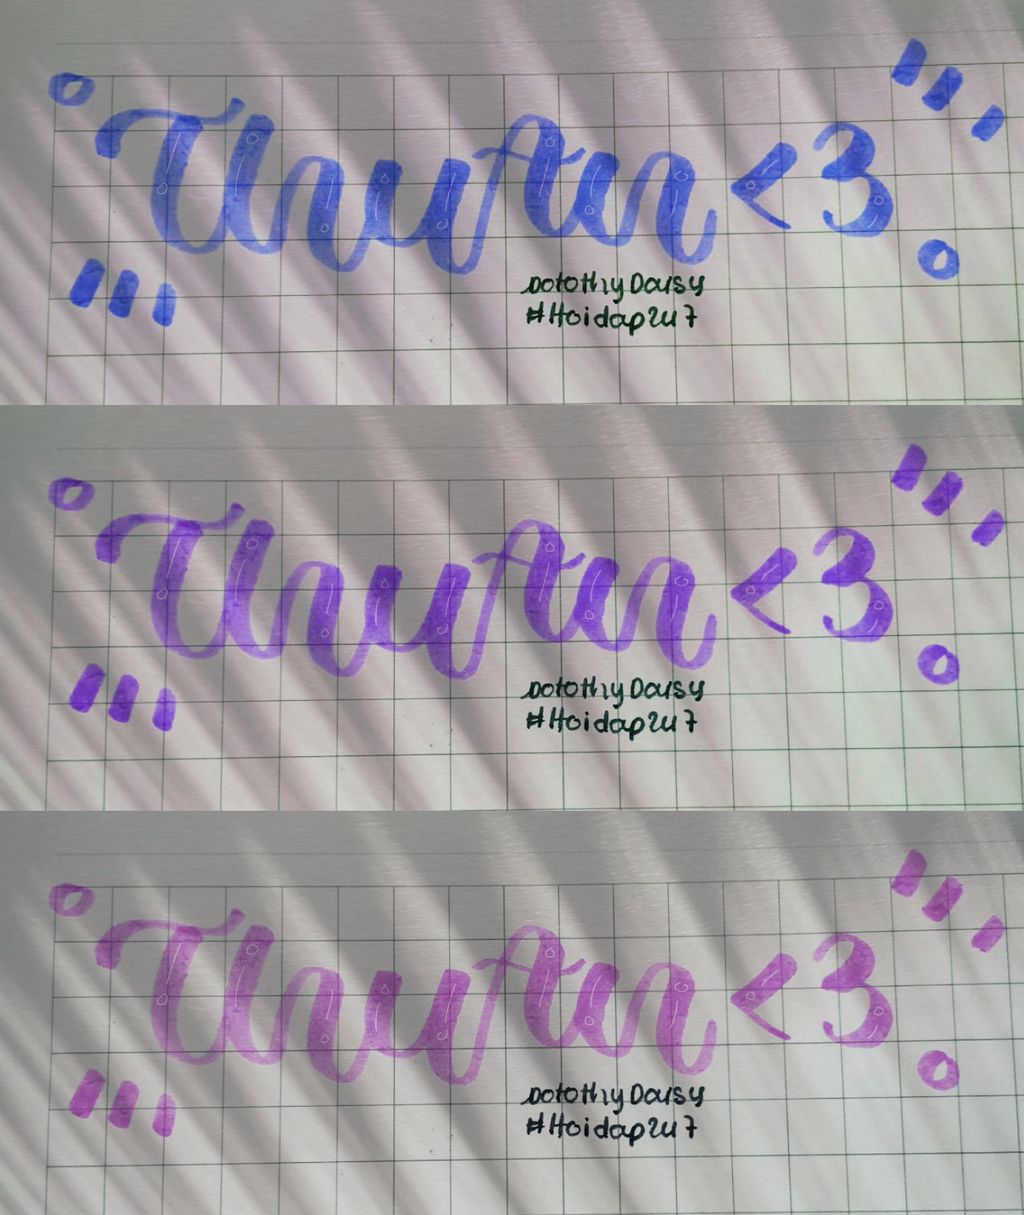 ThuAn <3
DorothyDaisy
#Hoidap247
ThuAn <3
DorothyDaisy
#Hoidap247
ThuAn <3
DorothyDaisy
#Hoidap247